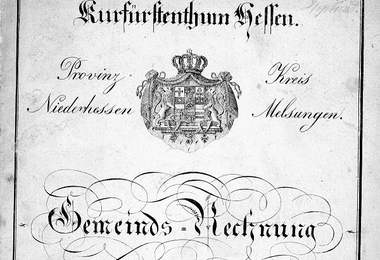 Kurfürstenthum Hessen.
Provinz Kreis
Niederhessen Melsungen.
Gemeinds-Rechnung